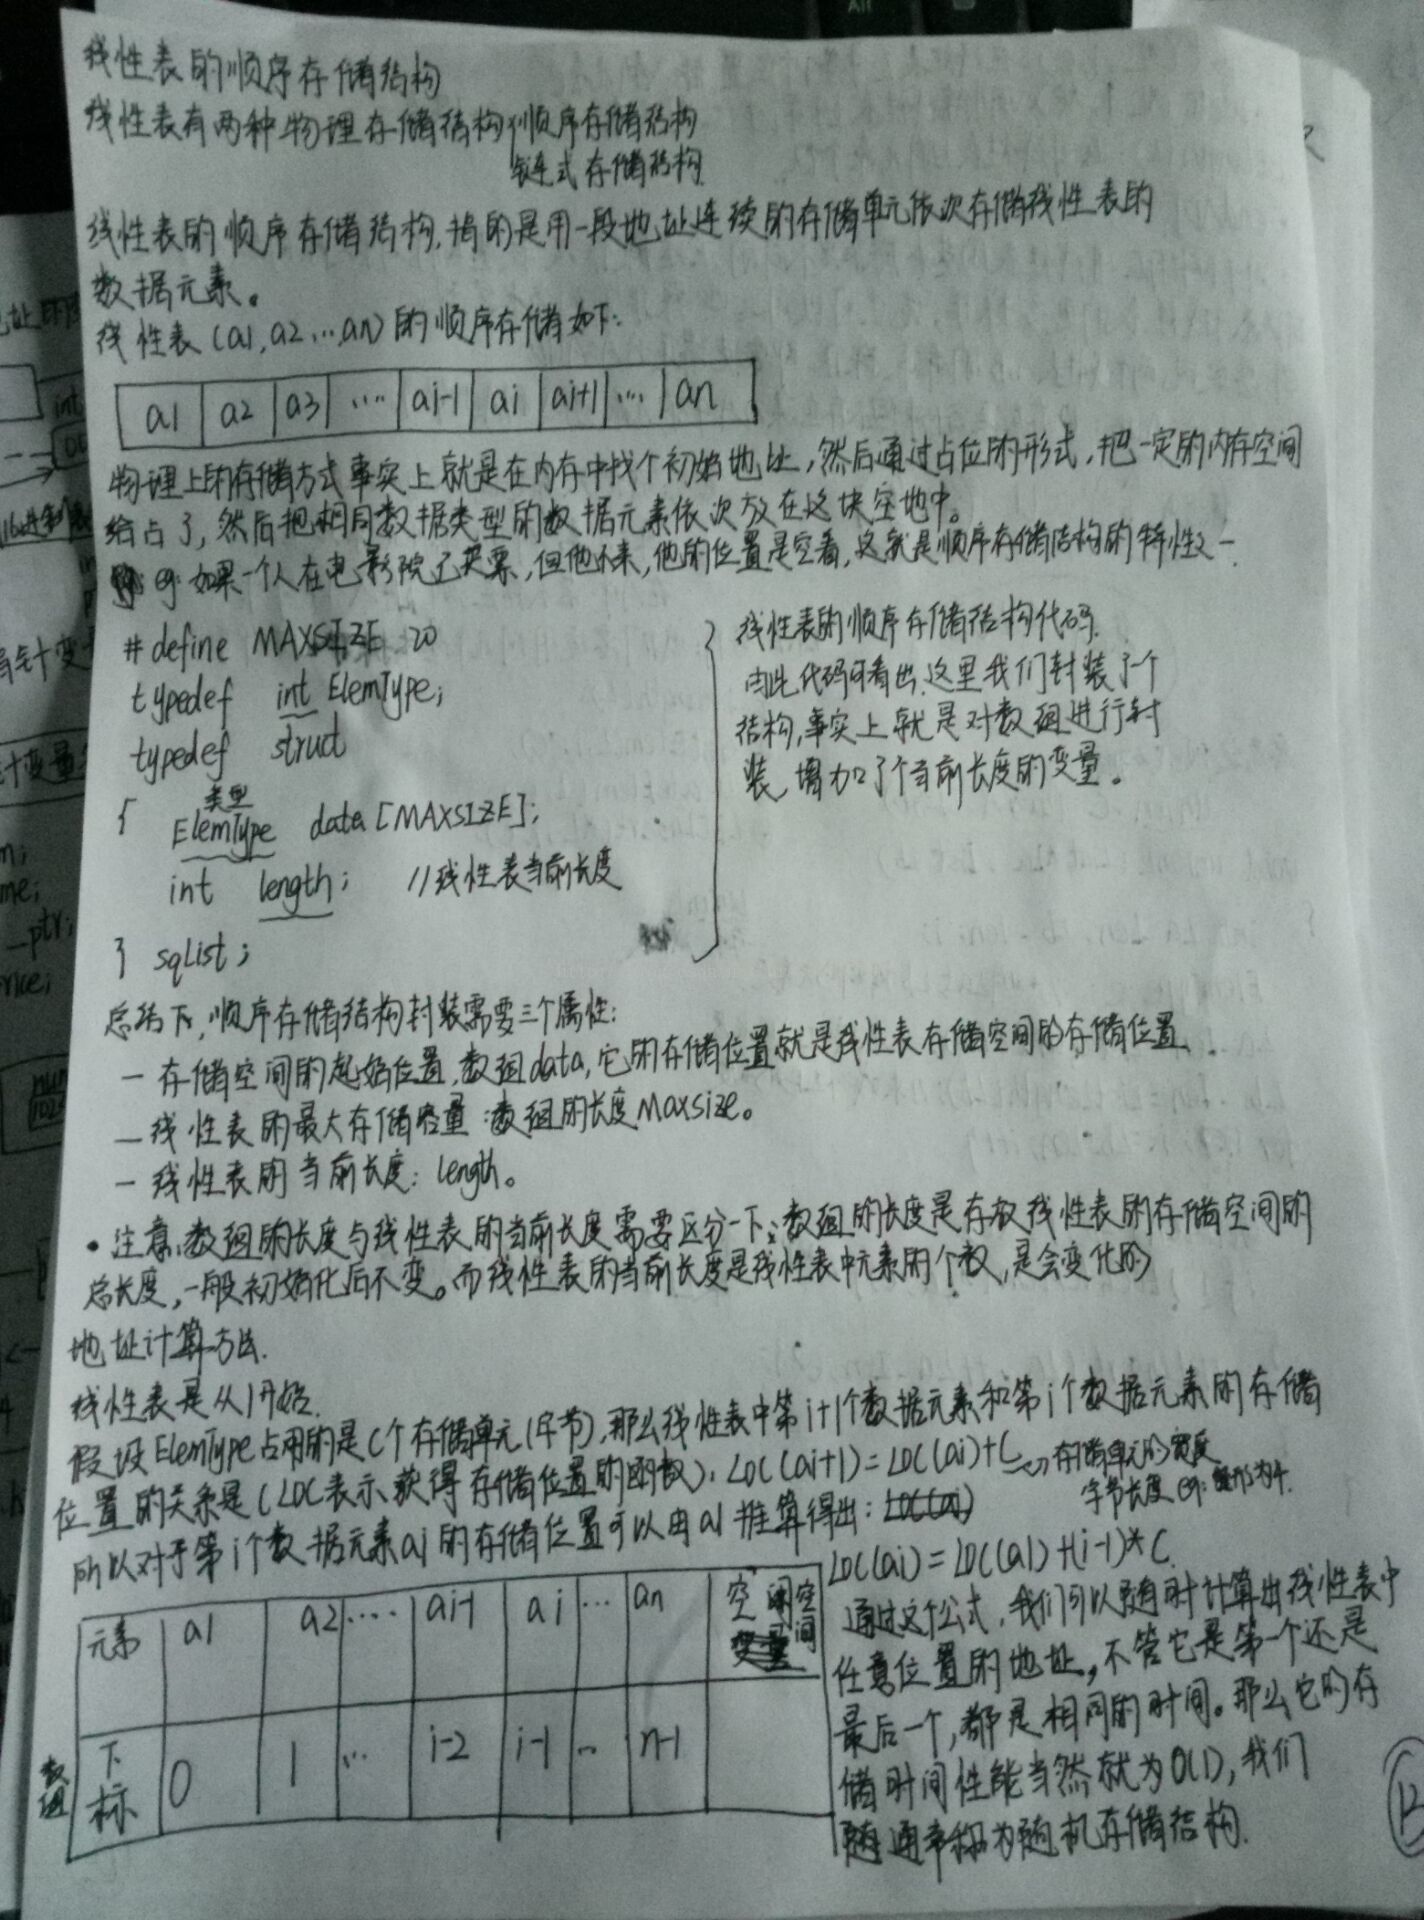 线性表的顺序存储结构
线性表有两种物理存储结构{顺序存储结构
链式存储结构
线性表的顺序存储结构,指的是用一段地址连续的存储单元依次存储线性表的
数据元素。
线性表(a1,a2…,an)的顺序存储如下:
a1 a2 a3 …. ai-1 ai ai+1 … an
物理上的存储方式事实上就是在内存中找个初始地址,然后通过占位的形式,把一定的内存空间
给占了,然后把相同数据类型的数据元素依次放在这块空地中。
eg:如果一个人在电影院了买票,但他不来,他的位置是空着,这就是顺序存储结构的特性之一.
#define MAXSIZE 20
typedef int ElemType;
typedef struct
类型
{ ElemType data[MAXSIZE];
int length; //线性表当前长度
} sqList;
线性表的顺序存储结构代码.
由此代码可看出.这里我们封装了个
结构,事实上就是对数组进行封
装,增加了个当前长度的变量。
总结下,顺序存储结构封装需要三个属性:
一存储空间的起始位置,数组data,它的存储位置就是线性表存储空间的存储位置.
一线性表的最大存储容量:数组的长度Maxsize。
一线性表的当前长度:length。
•注意,数组的长度与线性表的当前长度需要区分一下:数组的长度是存放线性表的存储空间的
总长度,一般初始化后不变。而线性表的当前长度是线性表中元素的个数,是会变化的
地址计算方法.
线性表是从1开始.
假设ElemType占用的是C个存储单元(字节),那么线性表中第i+1个数据元素和第i个数据元素的存储
位置的关系是(LOC表示获得存储位置的函数):LOC(ai+1)=LOC(ai)+C→存储单元的宽度
字节长度eg:整形为4.
所以对于第i个数据元素ai的存储位置可以由a1推算得出:LOC(ai)
LOC(ai)=LOC(a1)+(i-1)*C.
元素 a1 a2 …. ai-1 ai … an 空闲空间
数组 下标 0 1 … i-2 i-1 … n-1
通过这个公式,我们可以随时计算出线性表中
任意位置的地址,不管它是第一个还是
最后一个,都是相同的时间。那么它的存
储时间性能当然就为O(1),我们
通常称为随机存储结构.
12